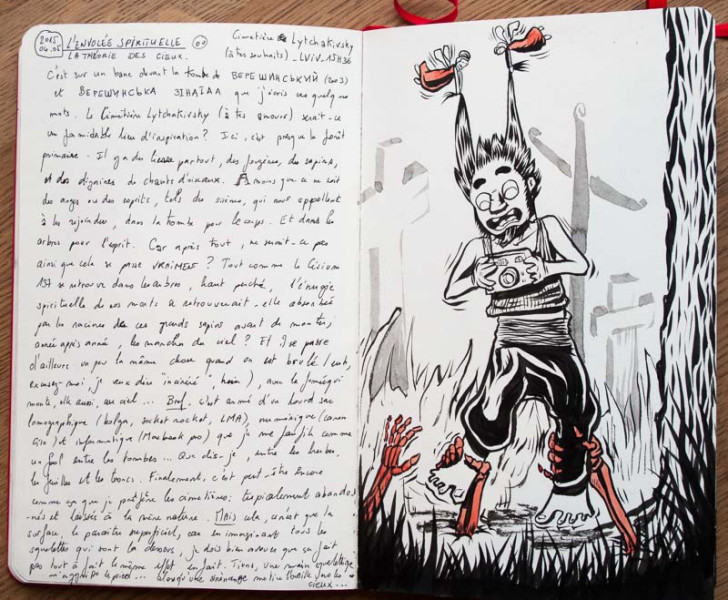 2015 04.05 L'ENVOLÉE SPIRITUELLE
LA THÉORIE DES CIEUX.
Cimetière Lytchakivsky
(à tes souhaits) - LVIV - 15H36
C'est sur un banc devant la tombe de ВЕРЕШИНСЬКИЙ (2003)
et ВЕРЕШИНСЬКА ЗІНАЇДА que j'écris ces quelques
mots. Le Cimetière Lytchakivsky (à tes amours) serait-ce
un formidable lieu d'inspiration? Ici, c'est presque la forêt
primaire. Il y a du lierre partout, des fougères, des sapins,
et des dizaines de chants d'oiseaux. A moins que ce ne soit
des anges ou des esprits, tels des sirènes, qui nous appellent
à les rejoindre, dans la tombe pour le corps. Et dans les
arbres pour l'esprit. Car après tout, ne serait-ce pas
ainsi que cela se passe VRAIMENT? Tout comme le Césium
137 se retrouve dans les arbres, haut perché, l'énergie
spirituelle de nos morts se retrouverait-elle absorbée
par les racines de ces grands sapins avant de monter,
année après année, les marches du ciel? Et il se passe
d'ailleurs un peu la même chose quand on est brûlé (euh,
excusez-moi je veux dire "incinéré", hein), avec la fumée qui
monte, elle aussi, au ciel... Bref. C'est armé d'un lourd sac
lomographique (holga, sprocket rocket, LMA), numérique (canon
) et informatique (Macbook pro) que je me faufile comme
un fou entre les tombes... Que dis-je, entre les herbes,
les feuilles et les troncs. Finalement, c'est peut-être encore
comme ça que je préfère les cimetières: tapicalement abandon-
-nés et laissés à la mère nature. MAIS cela, ce n'est que la
surface, le paraître superficiel, car en imaginant tous les
squelettes qui sont là dessous, je dois bien avouer que ça fait
pas tout à fait le même effet en fait. Tiens, une main squelettique
m'agrippe le pied... alors qu'une
CIEUX...